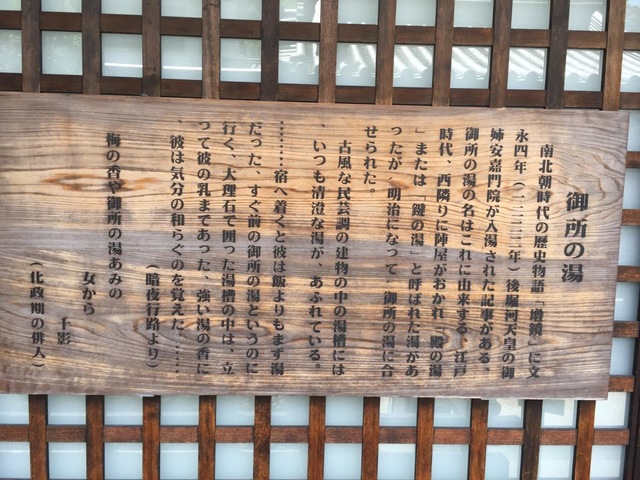 御所の湯
南北朝時代の歴史物語「増鏡」に文
永四年（一二三二年）後堀河天皇の御
姉安嘉門院が入湯された記事がある、
御所の湯の名はこれに由来する、江戸
時代、西隣りに陣屋がおかれ「殿の湯
」または「鍵の湯」と呼ばれた湯があ
ったが、明治になって、御所の湯に合
せられた。
古風な民芸調の建物の中の湯槽には
、いつも清澄な湯が、あふれている。
………宿へ着くと彼は飯よりもまず湯
だった、すぐ前の御所の湯というのに
行く、大理石で囲った湯槽の中は、立
って彼の乳まであった、強い湯の香に
、彼は気分の和らぐのを覚えた……
（暗夜行路より）
梅の香や御所の湯あみの
女から
千影
（化政期の俳人）